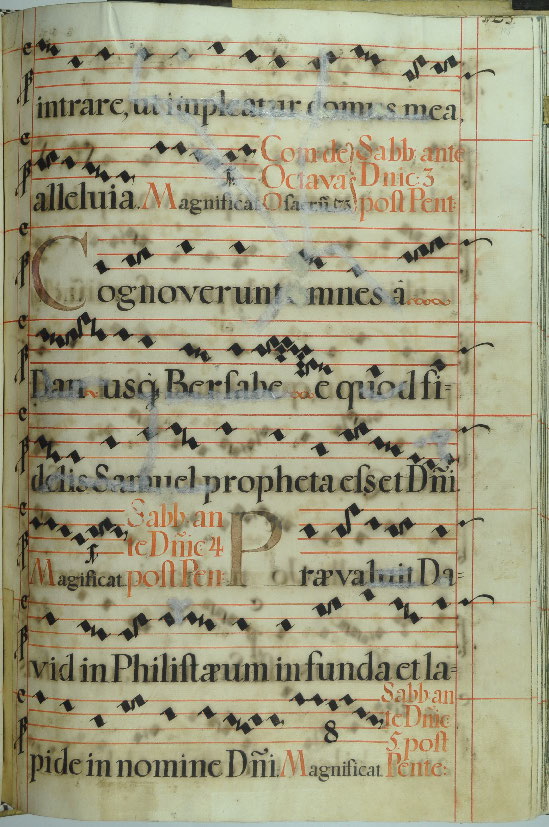 intrare, ut impleatur domus mea,
alleluia. Magnificat Sabb. ante
Octava Dnic. 3
post Pent.
Cognoverunt omnes â
Dan usq; Bersabe e quod fi=
delis Samuel propheta esset Dñi.
Sabb. an
te Dñic 4
Magificat post Pen.
Prævaluit Da=
vid in Philistæum in funda et la=
pide in nomine Dñi. Magnificat
Sabb an
te Dnic
5 post
Pente:
8